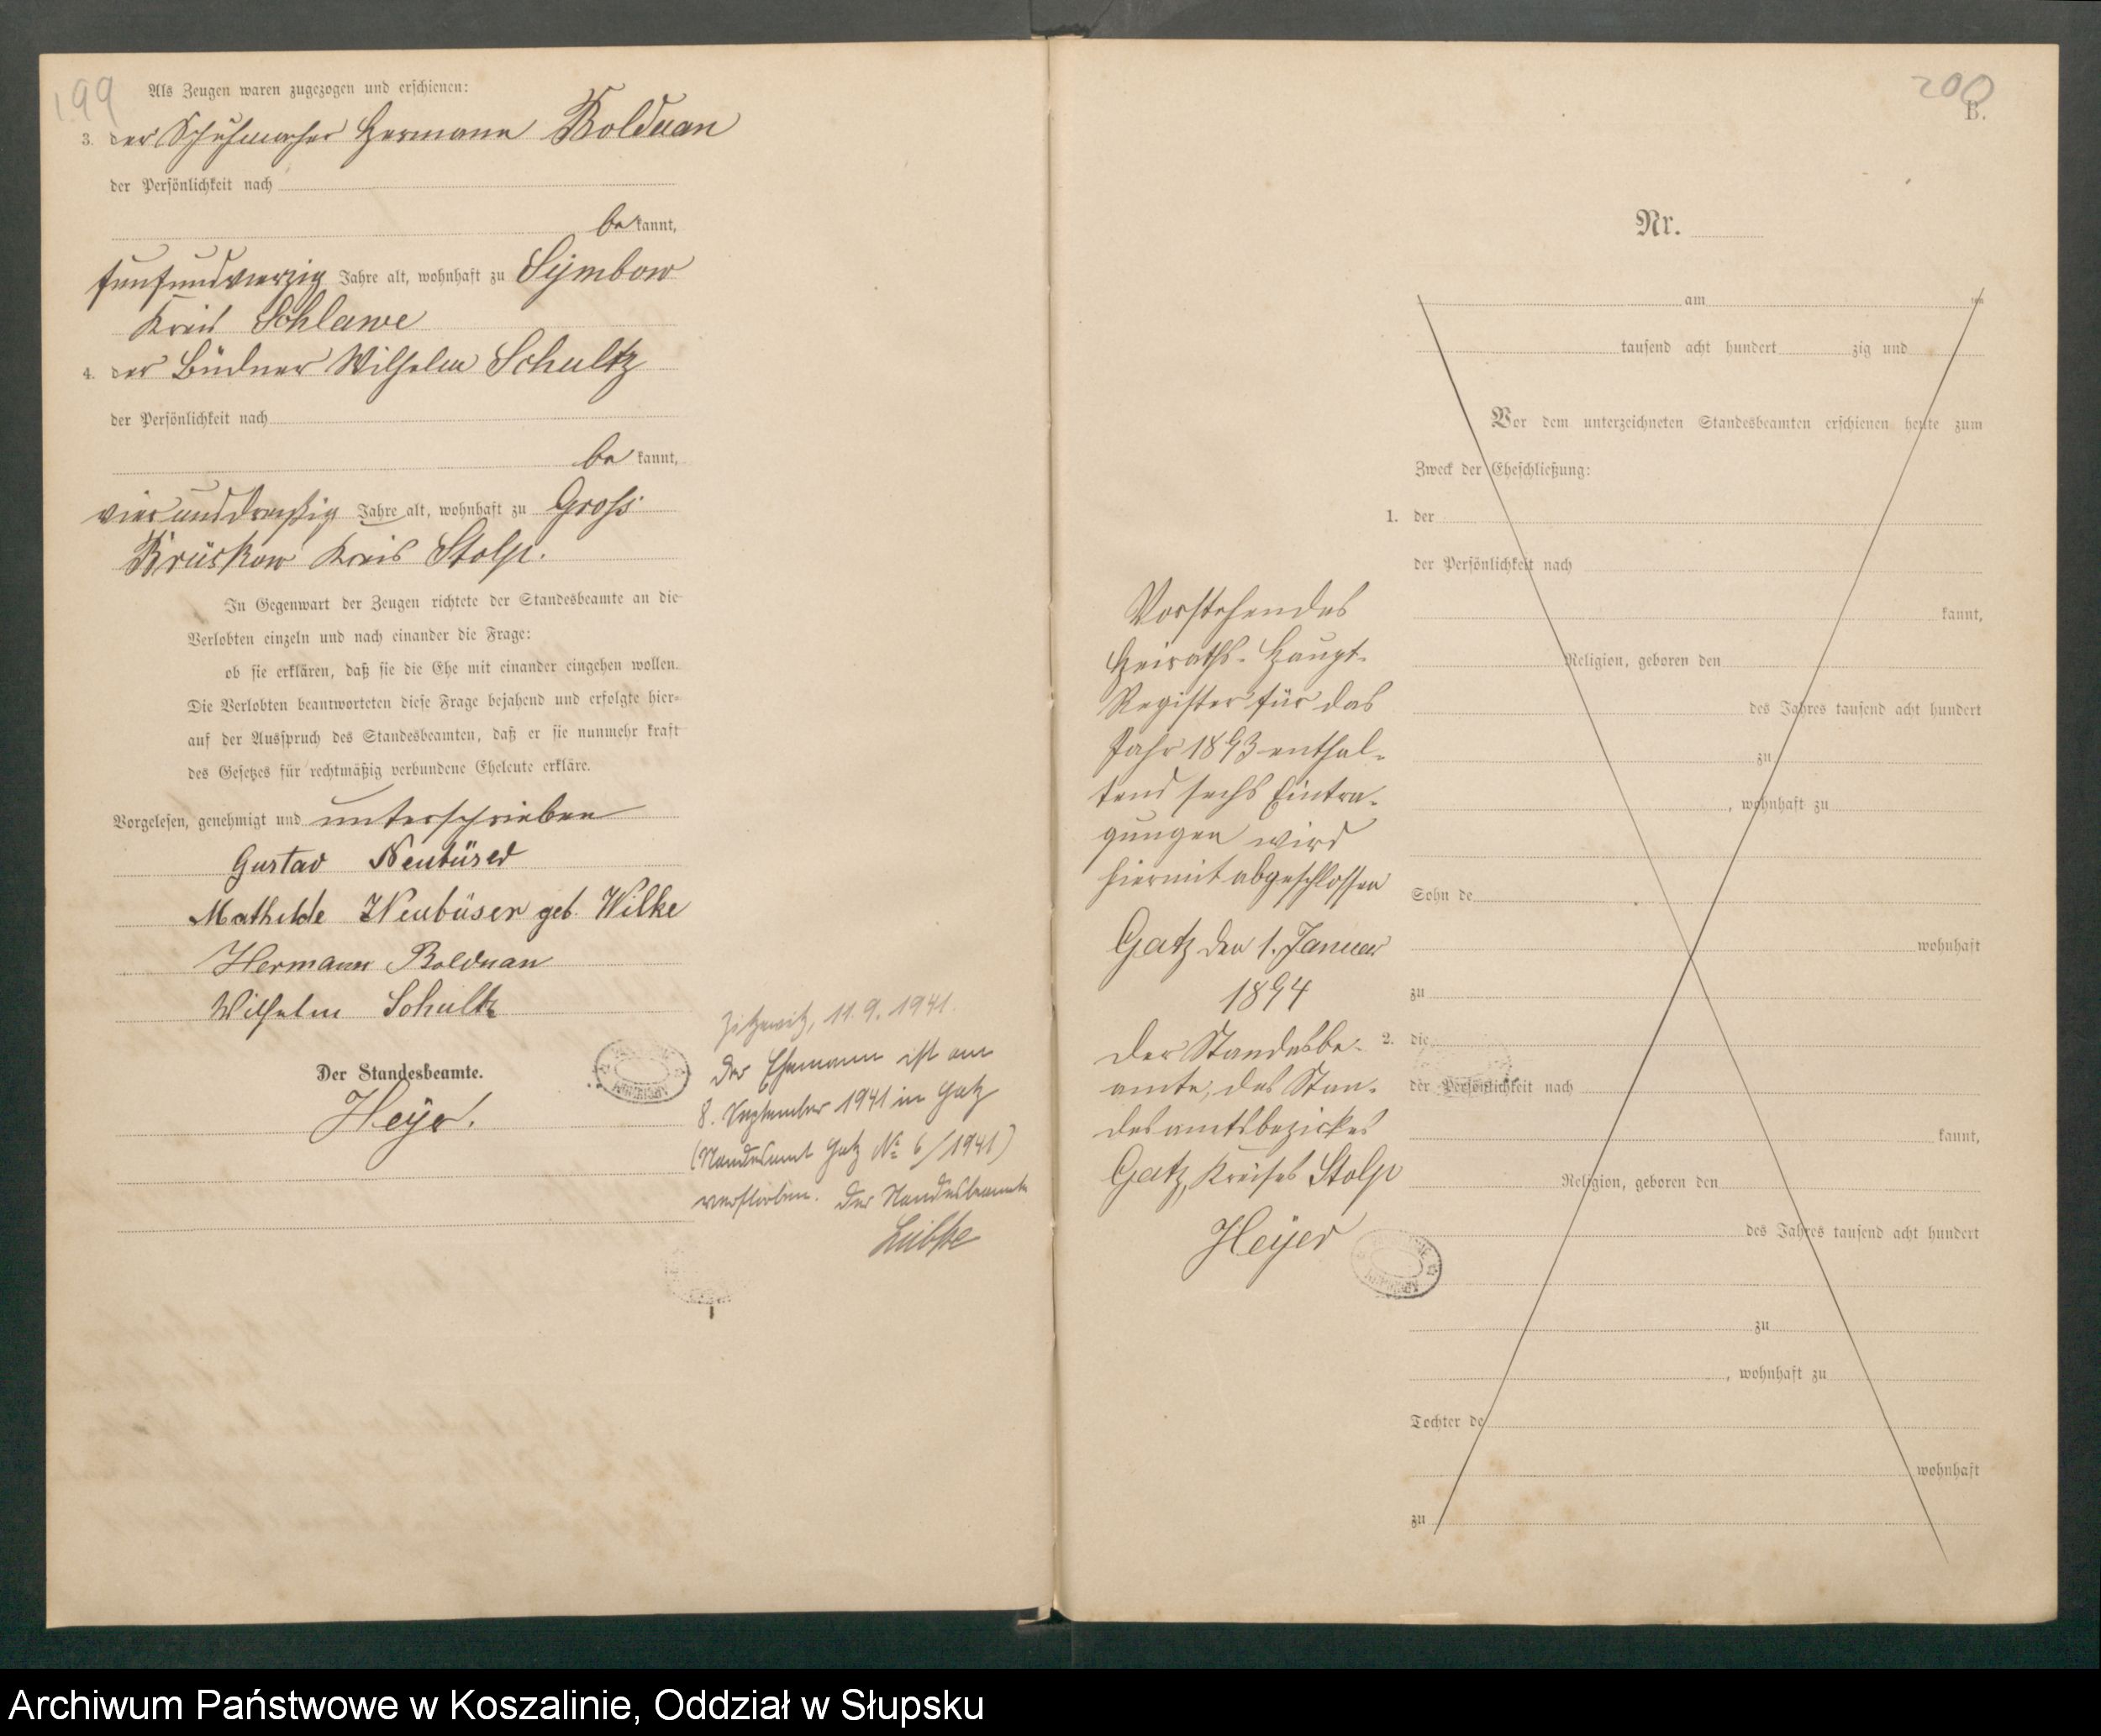 199
Als Zeugen waren zugezogen und erschienen:
3. der Schuhmacher Hermann Bolduan
der Persönlichkeit nach
be kannt,
fünfundvierzig Jahre alt, wohnhaft zu Symbow
Kreis Schlawe
4. der Büdner Wilhelm Schultz
der Persönlichkeit nach
be kannt,
vierunddreißig Jahre alt, wohnhaft zu Gross
Brüskow Kreis Stolp.
In Gegenwart der Zeugen richtete der Standesbeamte an die
Verlobten einzeln und nach einander die Frage:
ob sie erklären, daß sie die Ehe mit einander eingehen wollen.
Die Verlobten beantworteten diese Frage bejahend und erfolgte hier-
auf der Ausspruch des Standesbeamten, daß er sie nunmehr kraft
des Gesetzes für rechtmäßig verbundene Eheleute erkläre.
Vorgelesen, genehmigt und unterschrieben
Gustav Neubüser
Mathilde Neubüser geb. Wilke
Hermann Bolduan
Wilhelm Schultz
Der Standesbeamte.
Heyer.
Zitzewitz, 11.9.1941.
Der Ehemann ist am
8. September 1941 in Gatz
(Standesamt Gatz No 6/1941)
verstorben. Der Standesbeamte
200
B.
Nr.
am ten
tausend acht hundert zig und
Vor dem unterzeichneten Standesbeamten erschienen heute zum
Zweck der Eheschließung:
1. der
der Persönlichkeit nach
kannt,
Religion, geboren den
des Jahres tausend acht hundert
zu
, wohnhaft zu
Sohn de
wohnhaft
zu
2. die
der Persönlichkeit nach
kannt,
Religion, geboren den
des Jahres tausend acht hundert
zu
, wohnhaft zu
Tochter de
wohnhaft
zu
Vorstehendes
Heiraths-Haupt-
Register für das
Jahr 1893 enthal-
tend sechs Eintra-
gungen wird
hiermit abgeschlossen
Gatz den 1. Januar
1894
Der Standesbe-
amte, des Stan-
desamtsbezirkes
Gatz, Kreises Stolp
Heyer
Archiwum Państwowe w Koszalinie, Oddział w Słupsku